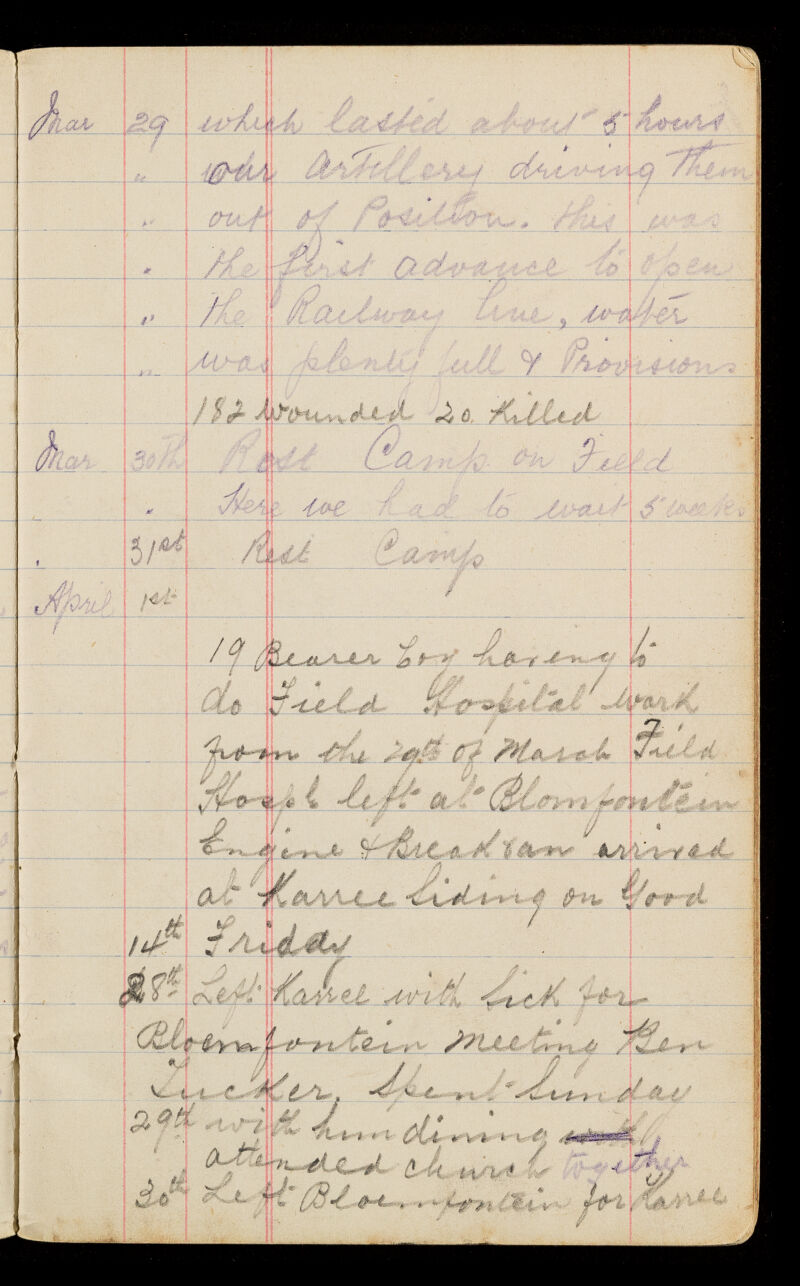 Mar 29 which lasted about 5 hours
" our Artillery driving them
" out of Position. this was
" the first advance to open
" the Railway line, water
" was plenty full & Provisions
182 wounded 20 Killed
Mar 30th Rest Camp on Field
" Here we had to wait 5 weeks
" 31st Rest Camp
April 1st
19 Bearer Coy having to
do Field Hospital work
from the 29th of March Field
Hospl left at Blomfontein
Engine & Break van arrived
at Karree Siding on Good
14th Friday
28th Left Karree with Sick for
Bloemfontein meeting Ben
Tucker. Spent Sunday
29th with him dining with
attended church together
30th Left Bloemfontein for Karree